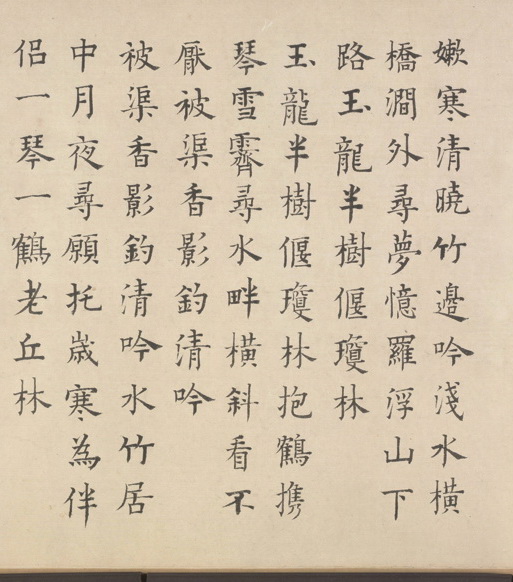 嫩寒清曉竹邊吟淺水橫
橋澗外尋夢憶羅浮山下
路玉龍半樹偃瓊林
玉龍半樹偃瓊林抱鶴攜
琴雪霽尋水畔橫斜看不
厭被渠香影釣清吟
被渠香影釣清吟水竹居
中月夜尋願托歲寒為伴
侶一琴一鶴老丘林